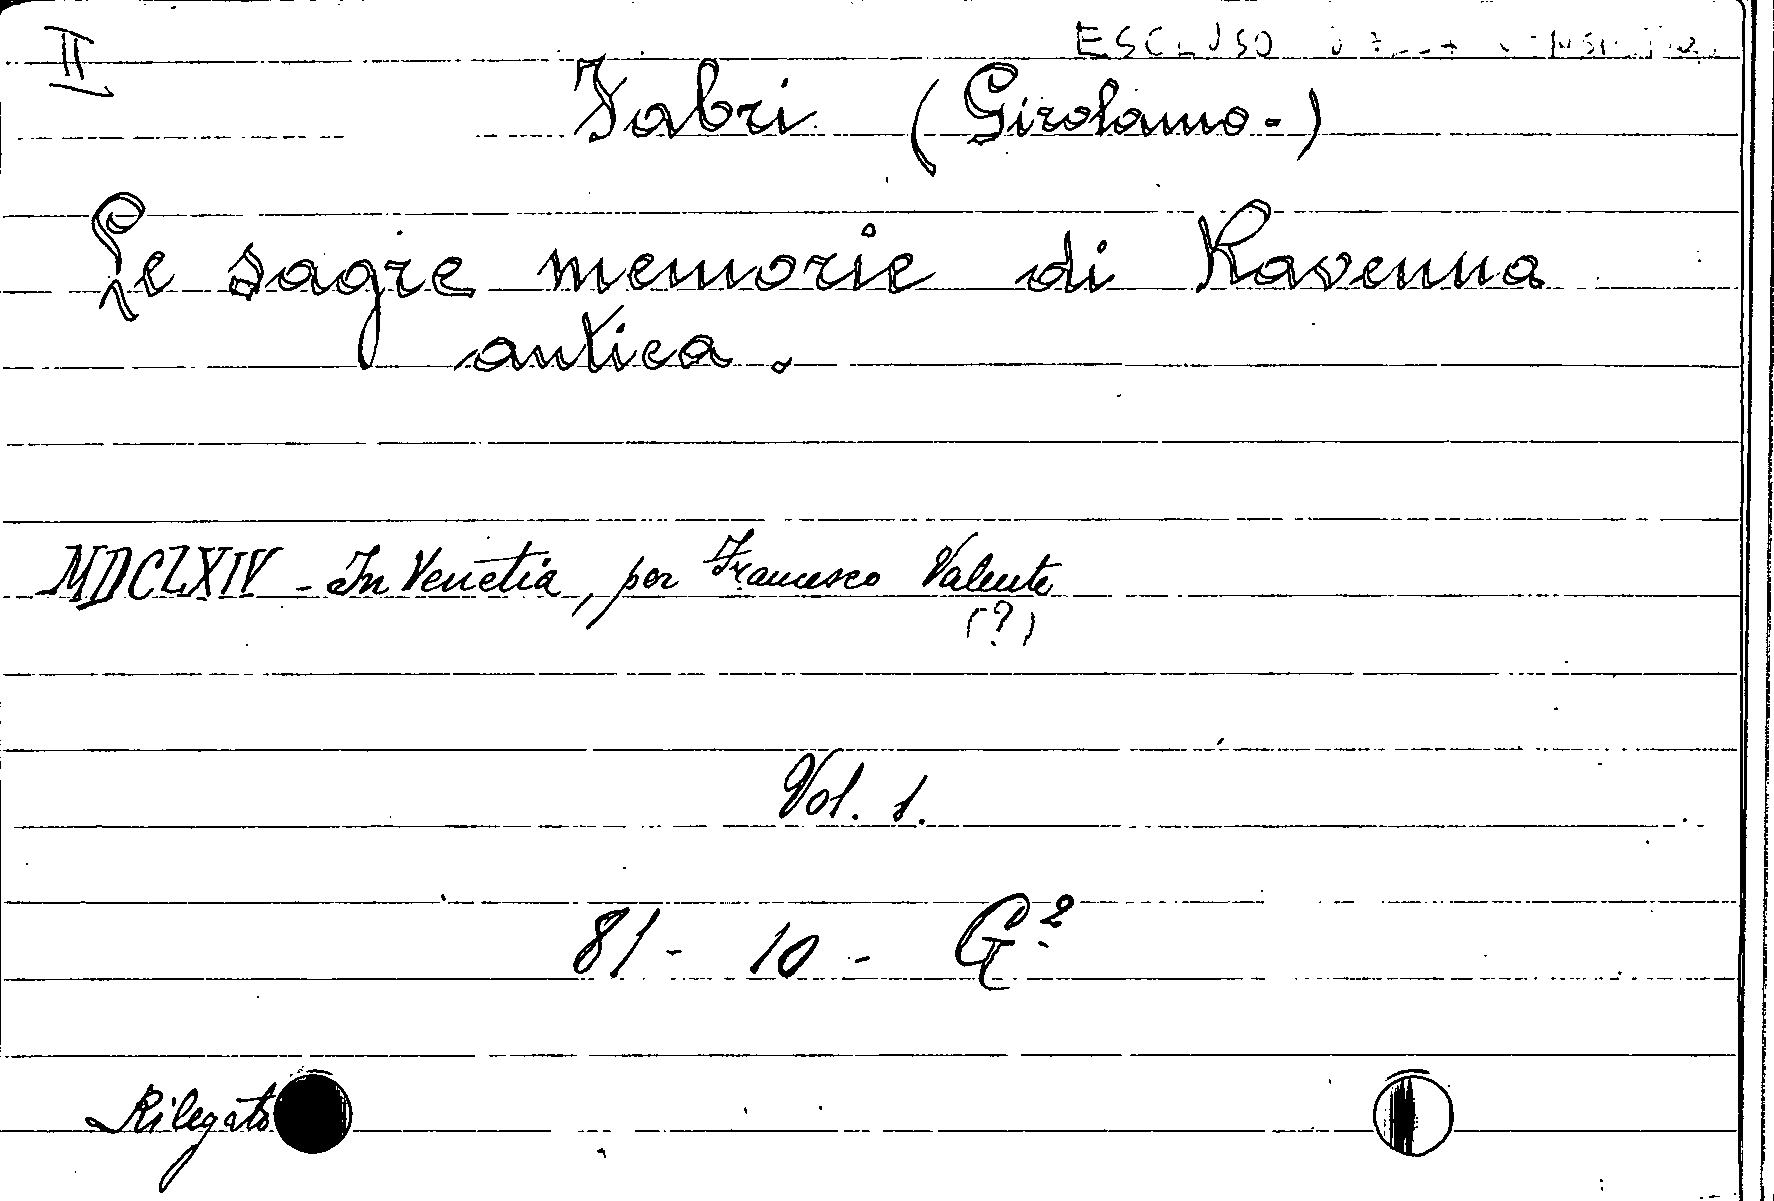 II
ESCLUSO
Fabri (Girolamo-)
Le sagre memorie di Ravenna
antica.
MDCLXIV - In Venetia, per Francesco Valente
(?)
Vol. 1.
81 - 10 - G²
Rilegato